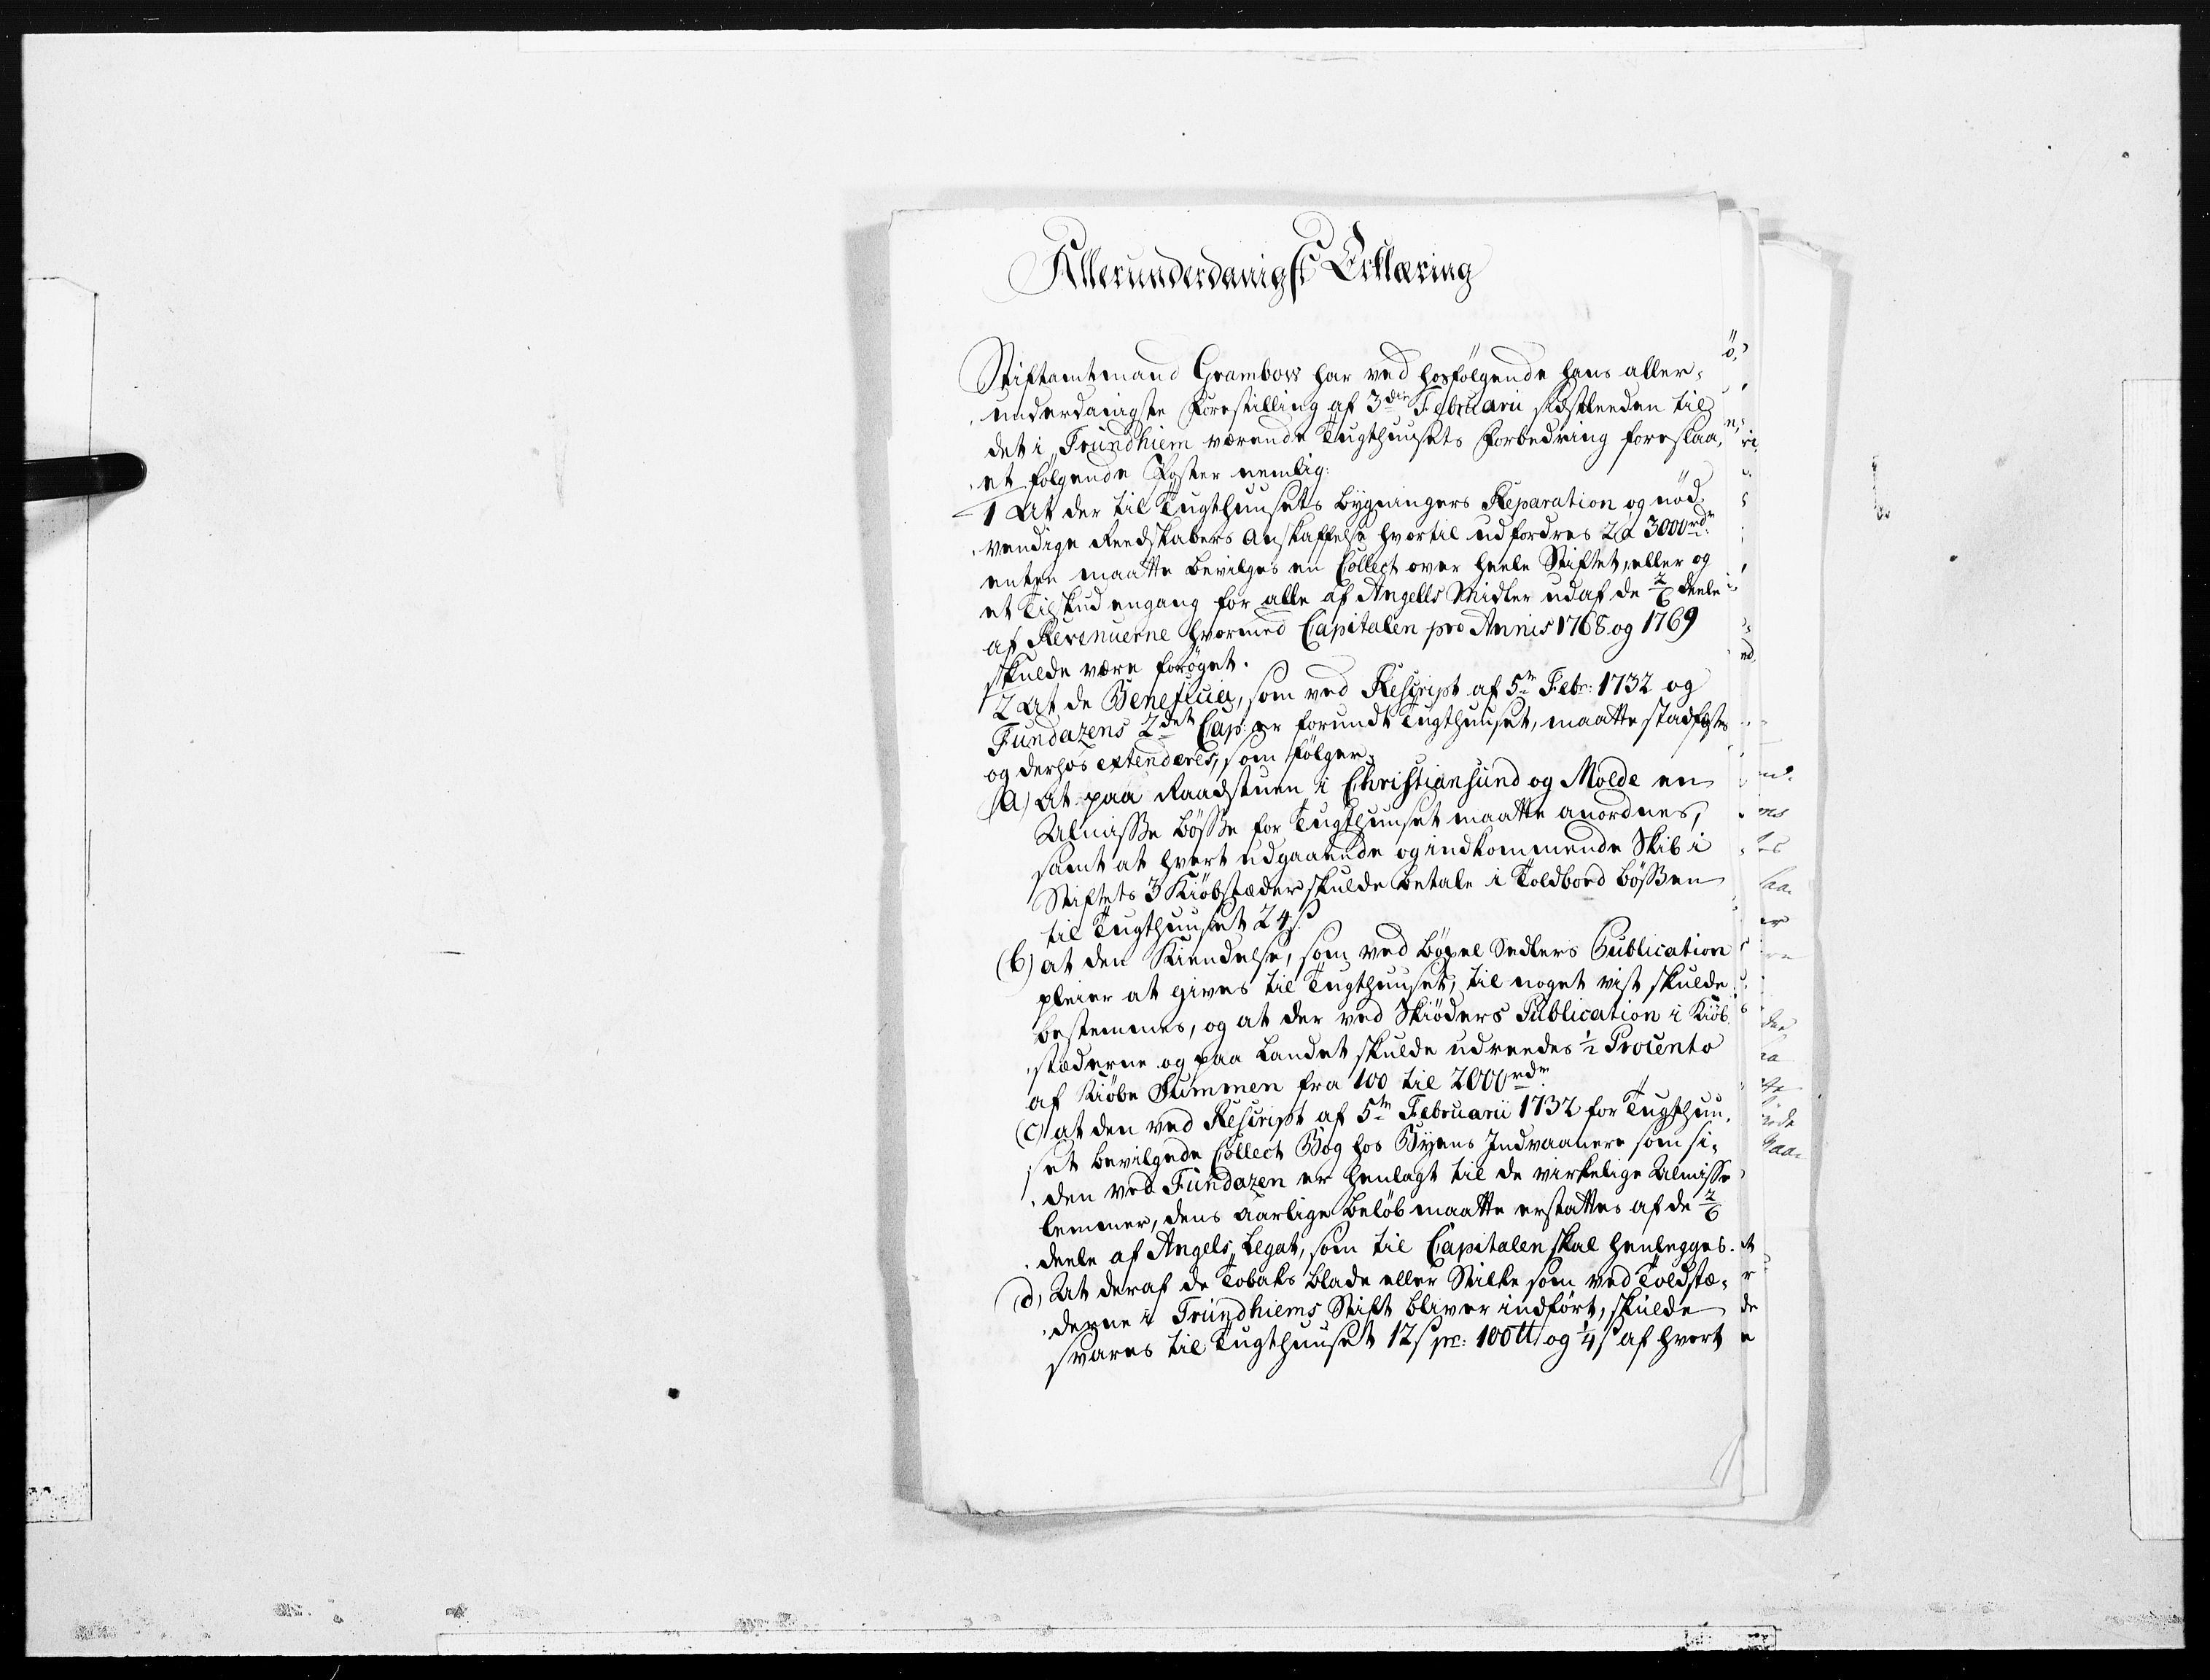 Allerunderdanigst Erklæring
Stiftamtmand Grambow har ved hosfölgende hans aller-
underdanigste Forestilling af 3die Februarii sidstleeden til
det i Trundhiem værende Tugthuusets Forbedring foreslaa-
et følgende Poster nemlig:
1 At der til Tugthuusets Bygningers Reparation og nød-
vendige Reedskabers Anskaffelse hvortil udfordres 2 a 3000 rdr
enten maatte bevilges en Collect over heele Stiftet, eller og
et Tilskud engang for alle af Angells Midler udaf de 2/6 deele
af Revenuerne hvormed Capitalen pro Annis 1768 og 1769
skulde være forøget.
2 At de Beneficia, som ved Rescript af 5te Febr: 1732 og
Fundazens 2det Cap: er forundt Tugthuuset, maatte stadfæstes
og derhos extenderes, som følger.
(a) At paa Raadstuen i Christiansund og Molde en
Almisse Bøsse for Tugthuuset maatte anordnes,
samt at hvert udgaaende og indkommende Skib i
Stiftets 3 Kiøbstæder skulde betale i Toldbod Bøssen
til Tugthuuset 24 s.
(b) at den Kiendelse, som ved Bøxel Sedlers Publication
pleier at gives til Tugthuuset, til noget vist skulde
bestemmes, og at der ved Skiøders Publication i Kiøb-
stæderne og paa Landet skulde udreedes 1/2 Procento
af Kiøbe Summen fra 100 til 2000 rdr
(c) at den ved Rescript af 5te Februarii 1732 for Tugthuu-
set bevilgede Collect Bog hos Byens Indvaanere som si-
den ved Fundazen er henlagt til de virkelige Almisse
lemmer, dens aarlige Beløb maatte erstattes af de 2/6
deele af Angels Legat, som til Capitalen skal henlegges.
(d) At deraf de Tobaks Blade eller Stilke som ved Toldstæ-
derne i Trundhiems Stift bliver indført, skulde
svares til Tugthuuset 12 s pr: 100 ℔ og 1/4 s af hvert